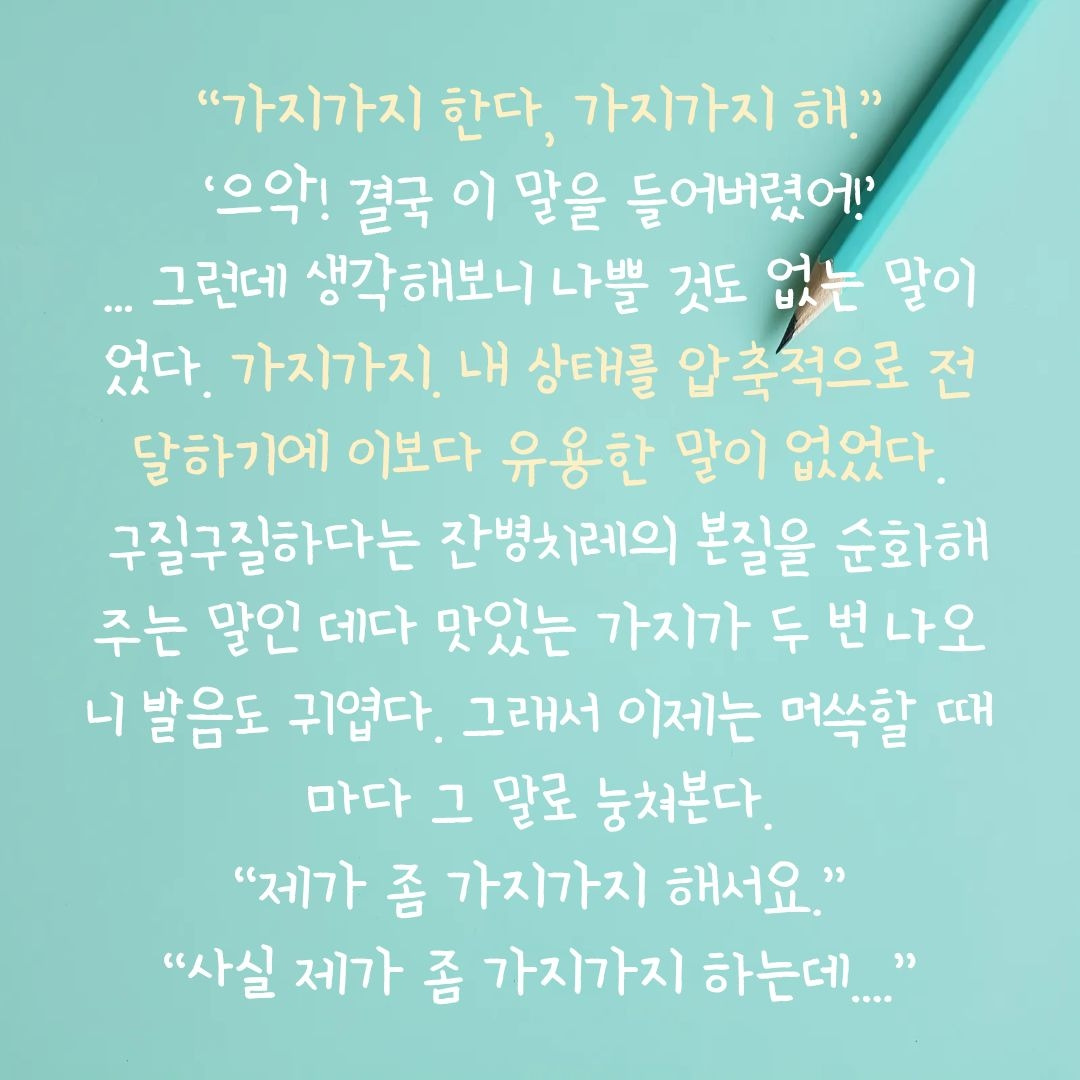 “가지가지 한다, 가지가지 해.”
‘으악! 결국 이 말을 들어버렸어!’
... 그런데 생각해보니 나쁠 것도 없는 말이
었다. 가지가지. 내 상태를 압축적으로 전
달하기에 이보다 유용한 말이 없었다.
구질구질하다는 잔병치레의 본질을 순화해
주는 말인 데다 맛있는 가지가 두 번 나오
니 발음도 귀엽다. 그래서 이제는 머쓱할 때
마다 그 말로 눙쳐본다.
“제가 좀 가지가지 해서요.”
“사실 제가 좀 가지가지 하는데....”